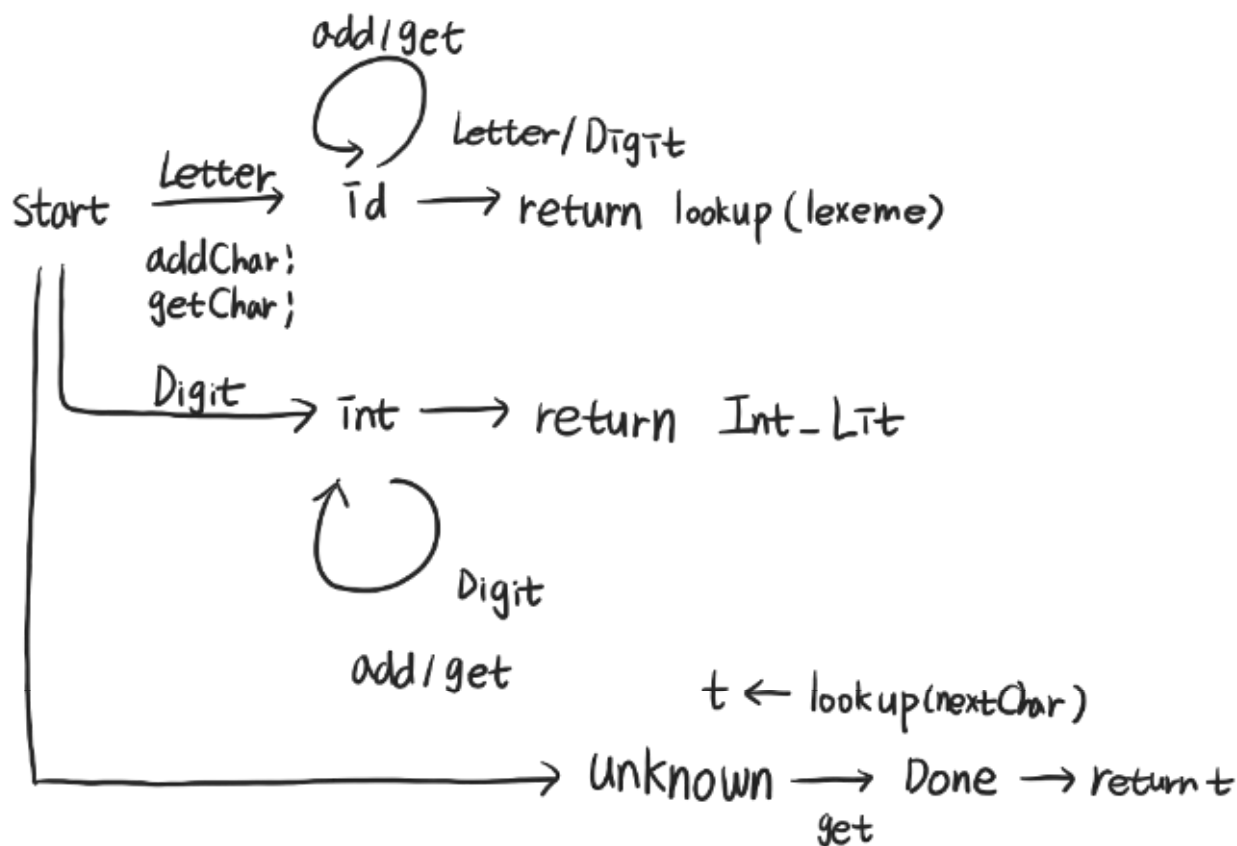 add/get
Letter/Digit
Letter
start
id
return lookup (lexeme)
addChar;
getChar;
Digit
int
return Int_Lit
Digit
add/get
t ← lookup(nextChar)
unknown
Done
return t
get